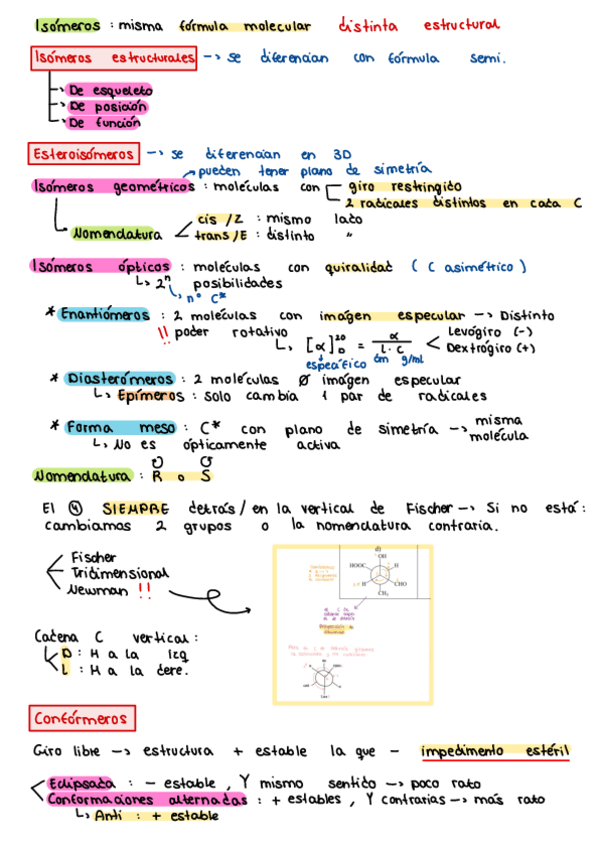 Isómeros : misma fórmula molecular distinta estructural
Isómeros estructurales -> se diferencian con fórmula semi.
De esqueleto
De posición
De función
Esteroisómeros -> se diferencian en 3D
pueden tener plano de simetría
Isómeros geométricos : moléculas con giro restringido
2 radicales distintos en cada C
Nomenclatura cis / Z : mismo lado
trans / E : distinto "
Isómeros ópticos : moléculas con quiralidad ( C asimétrico )
2ⁿ posibilidades
nº C*
* Enantiómeros : 2 moléculas con imágen especular -> Distinto
!! poder rotativo [α]²⁰D = α / l · c Levógiro (-)
Dextrógiro (+)
específico dm g/ml
* Diasterómeros : 2 moléculas Ø imágen especular
Epímeros : solo cambia 1 par de radicales
* Forma meso : C* con plano de simetría -> misma molécula
No es ópticamente activa
Nomenclatura : R o S
El ④ SIEMPRE detrás / en la vertical de Fischer -> Si no está :
cambiamos 2 grupos o la nomenclatura contraria.
Fischer
Tridimensional
Newman !!
d)
OH
HOOC H
H CHO
CH₃
Cadena C vertical :
D : H a la izq
L : H a la dere.
Confórmeros
Giro libre -> estructura + estable la que - impedimento estéril
Eclipsada : - estable , Y mismo sentido -> poco rato
Conformaciones alternadas : + estables , Y contrarias -> más rato
Anti : + estable